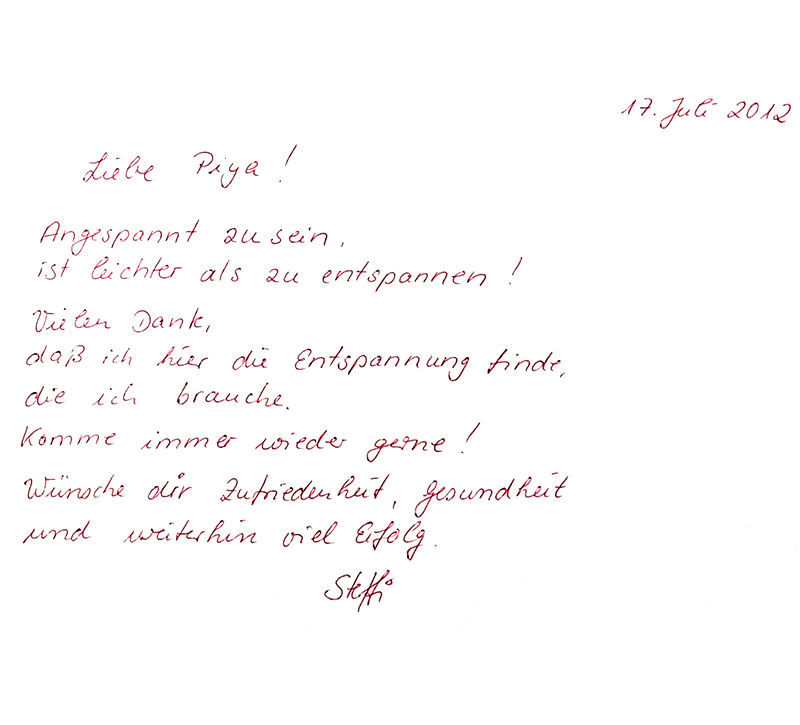 17. Juli 2012
Liebe Piya!
Angespannt zu sein,
ist leichter als zu entspannen!
Vielen Dank,
daß ich hier die Entspannung finde,
die ich brauche.
Komme immer wieder gerne!
Wünsche dir Zufriedenheit, Gesundheit
und weiterhin viel Erfolg.
Steffi